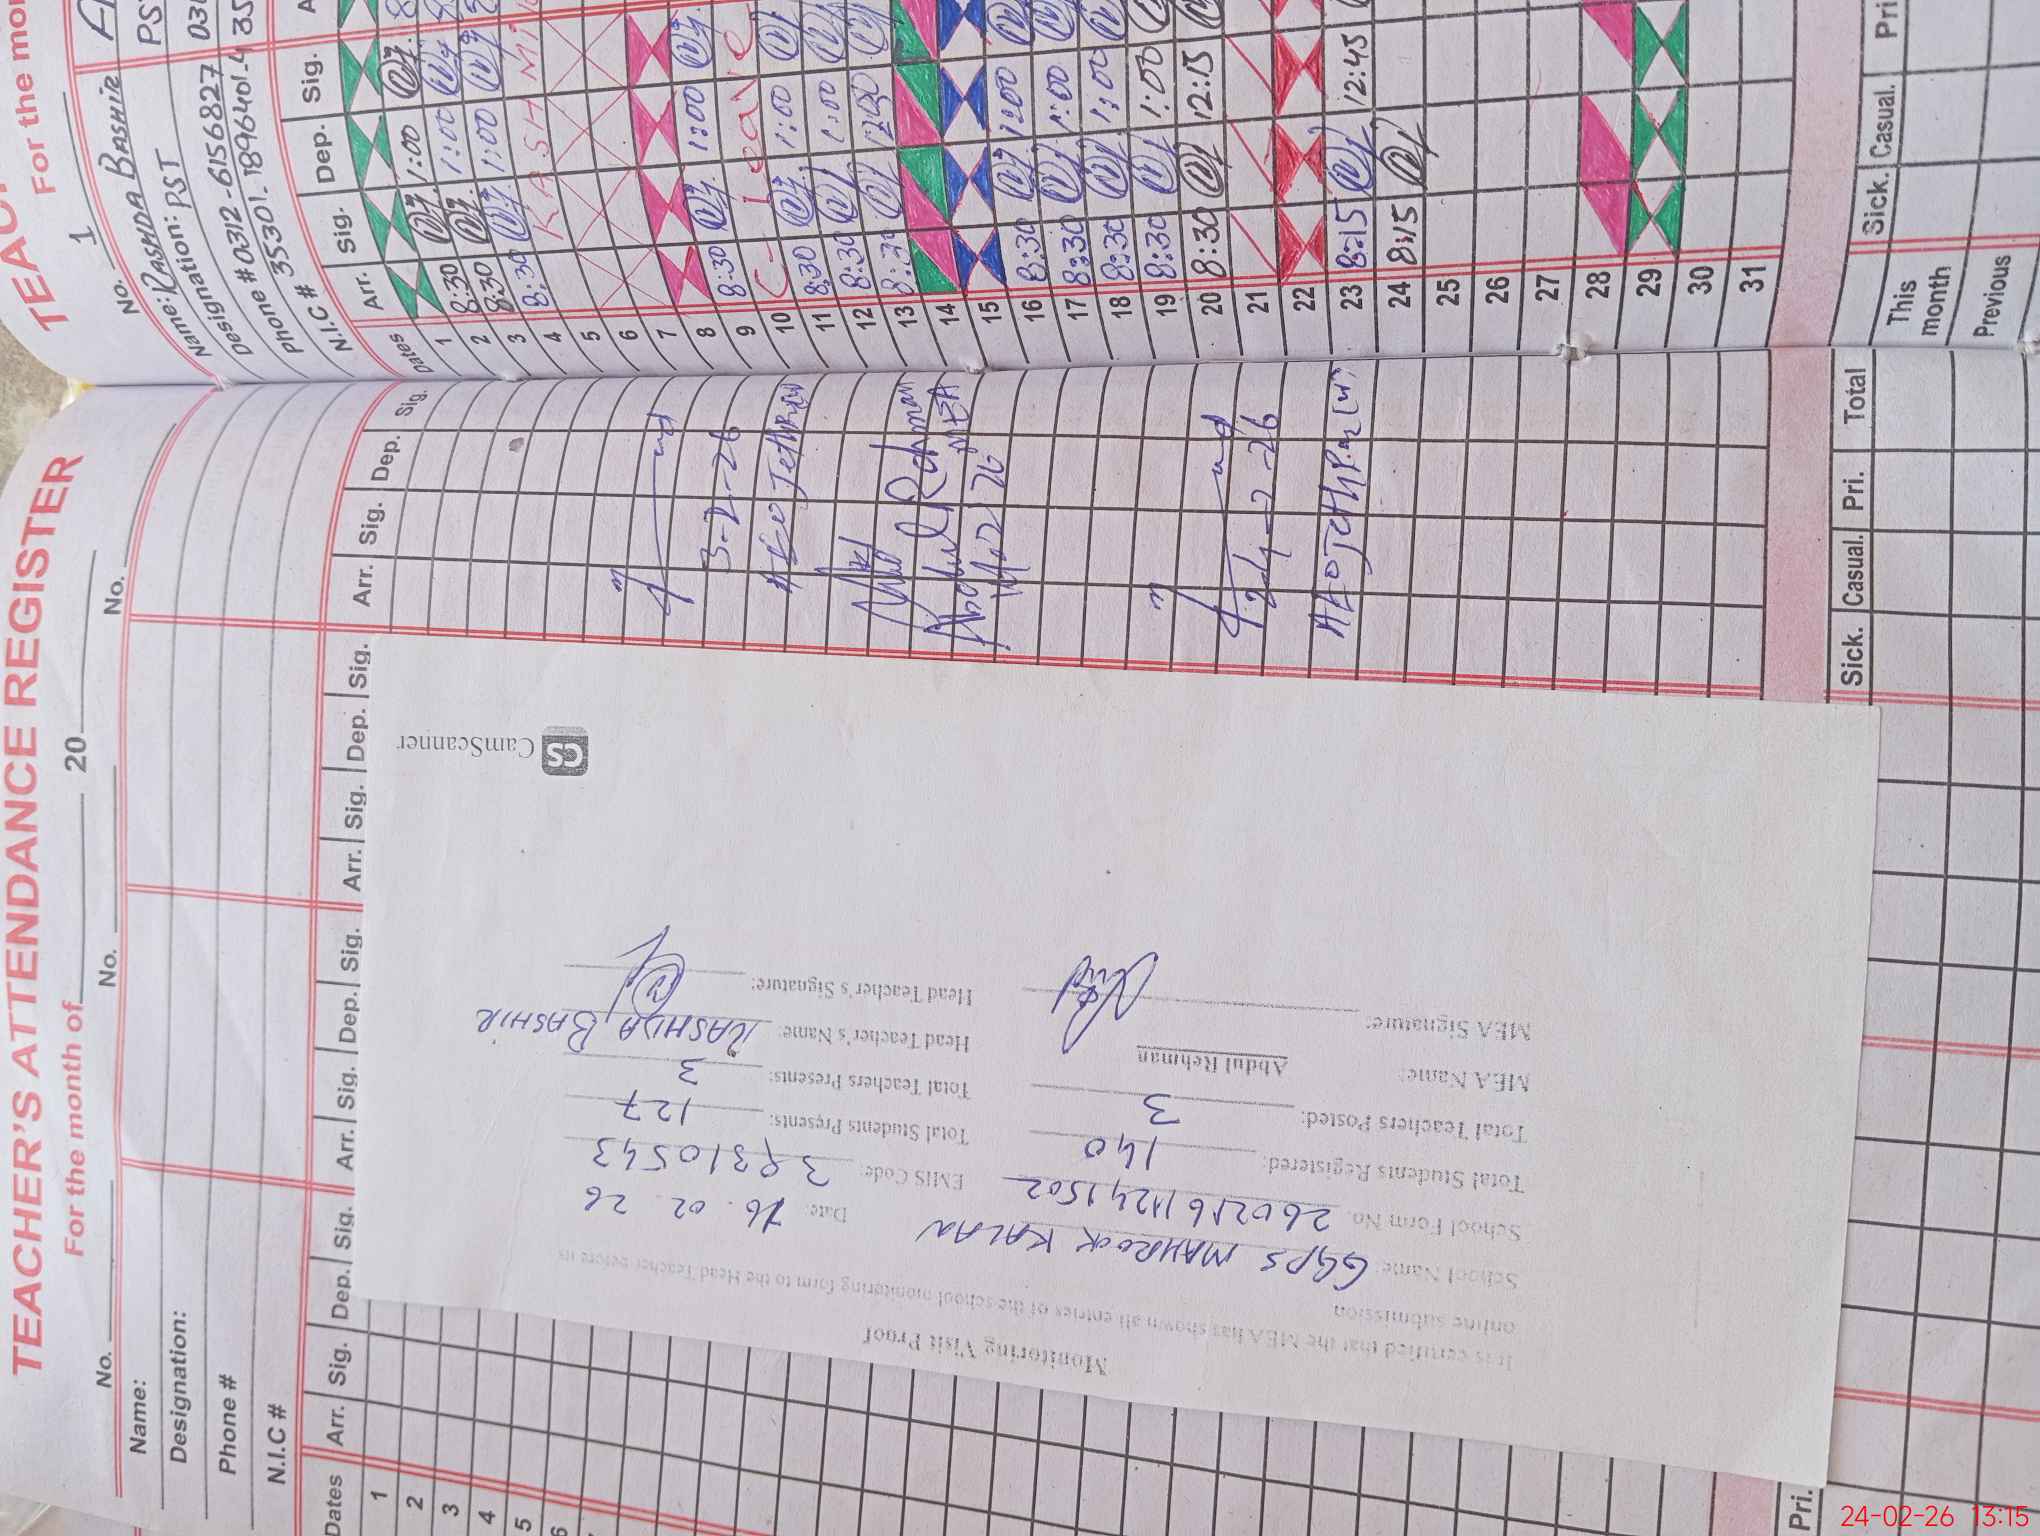 TEACHER'S ATTENDANCE REGISTER
For the month of 20
No. No. No.
Name:
Designation:
Phone #
N.I.C #
Dates Arr. Sig. Dep. Sig. Arr. Sig. Dep. Sig. Arr. Sig. Dep. Sig. Arr. Sig. Dep. Sig.
1
2
3
4
5
6
3-2-26
Abdul Rehman
MEA
24-2-26
Sick. Casual. Pri. Total
Pri.
Monitoring Visit Proof
It is certified that the MEA has shown all entries of the school monitoring form to the Head Teacher before its
online submission
School Name: GGPS MAHROOK KALAN
School Form No. Date: 16.02.26
Total Students Registered: 140 EMIS Code: 38310543
Total Teachers Posted: 3 Total Students Presents: 127
MEA Name: Abdul Rehman Total Teachers Presents: 3
MEA Signature: Head Teacher's Name: RASHDA BASHIR
Head Teacher's Signature:
CS CamScanner
For the mon
No. 1
Name: RASHDA BASHIR
Designation: PST
Phone # 0312-6156827
N.I.C # 35301-1896401-4
Dates Arr. Sig. Dep. Sig.
1
2 8:30 1:00
3 8:30 1:00
4 8:30 1:00
KASHMI
5
6
7
8 8:30 1:00
9 C-Leave
10 8:30 1:00
11 8:30 1:00
12 8:30 12:30
13
14
15
16 8:30 1:00
17 8:30 1:00
18 8:30 1:00
19 8:30 1:00
20 8:30 12:15
21
22
23 8:15 12:45
24 8:15
25
26
27
28
29
30
31
Sick. Casual. Pri
This month
Previous
24-02-26 13:15